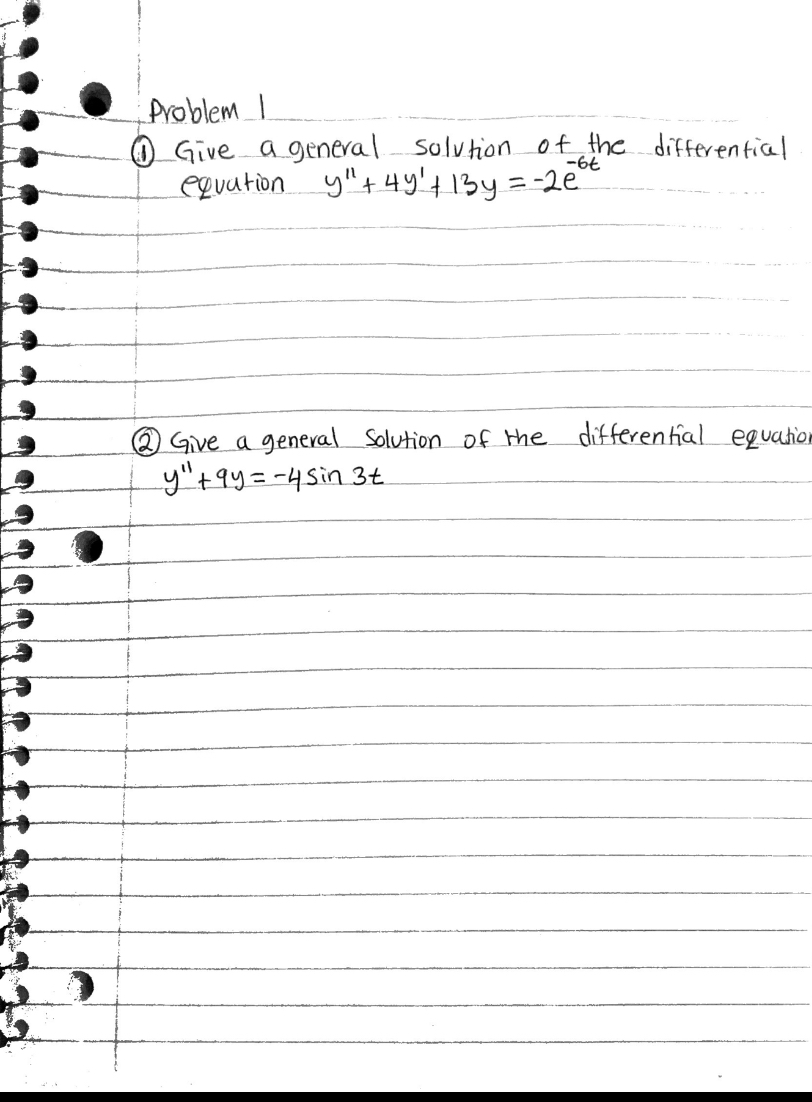 Problem 1
① Give a general solution of the differential
equation y'' + 4y' + 13y = -2e^{-6t}
② Give a general solution of the differential equation
y'' + 9y = -4 sin 3t